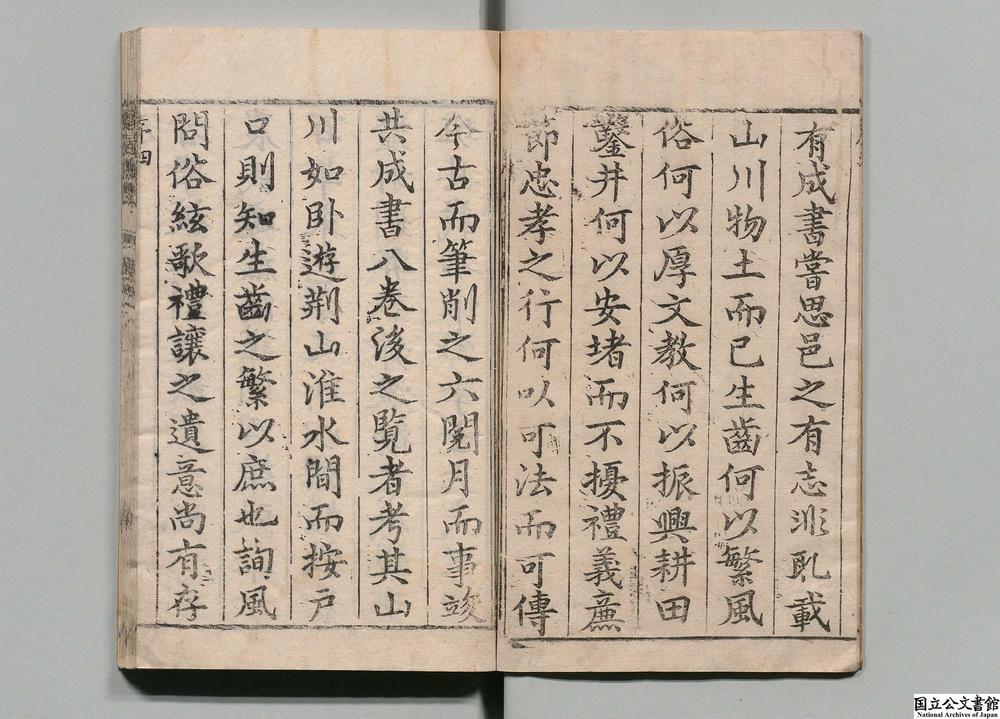 有成書嘗思邑之有志非耴載
山川物土而已生齒何以繁風
俗何以厚文教何以振興耕田
鑿井何以安堵而不擾禮義廉
節忠孝之行何以可法而可傳
今古而筆削之六閱月而事竣
共成書八卷後之覽者考其山
川如卧遊荆山淮水間而按戶
口則知生齒之繁以庶也詢風
問俗絃歌禮讓之遺意尚有存
序四
国立公文書館
National Archives of Japan